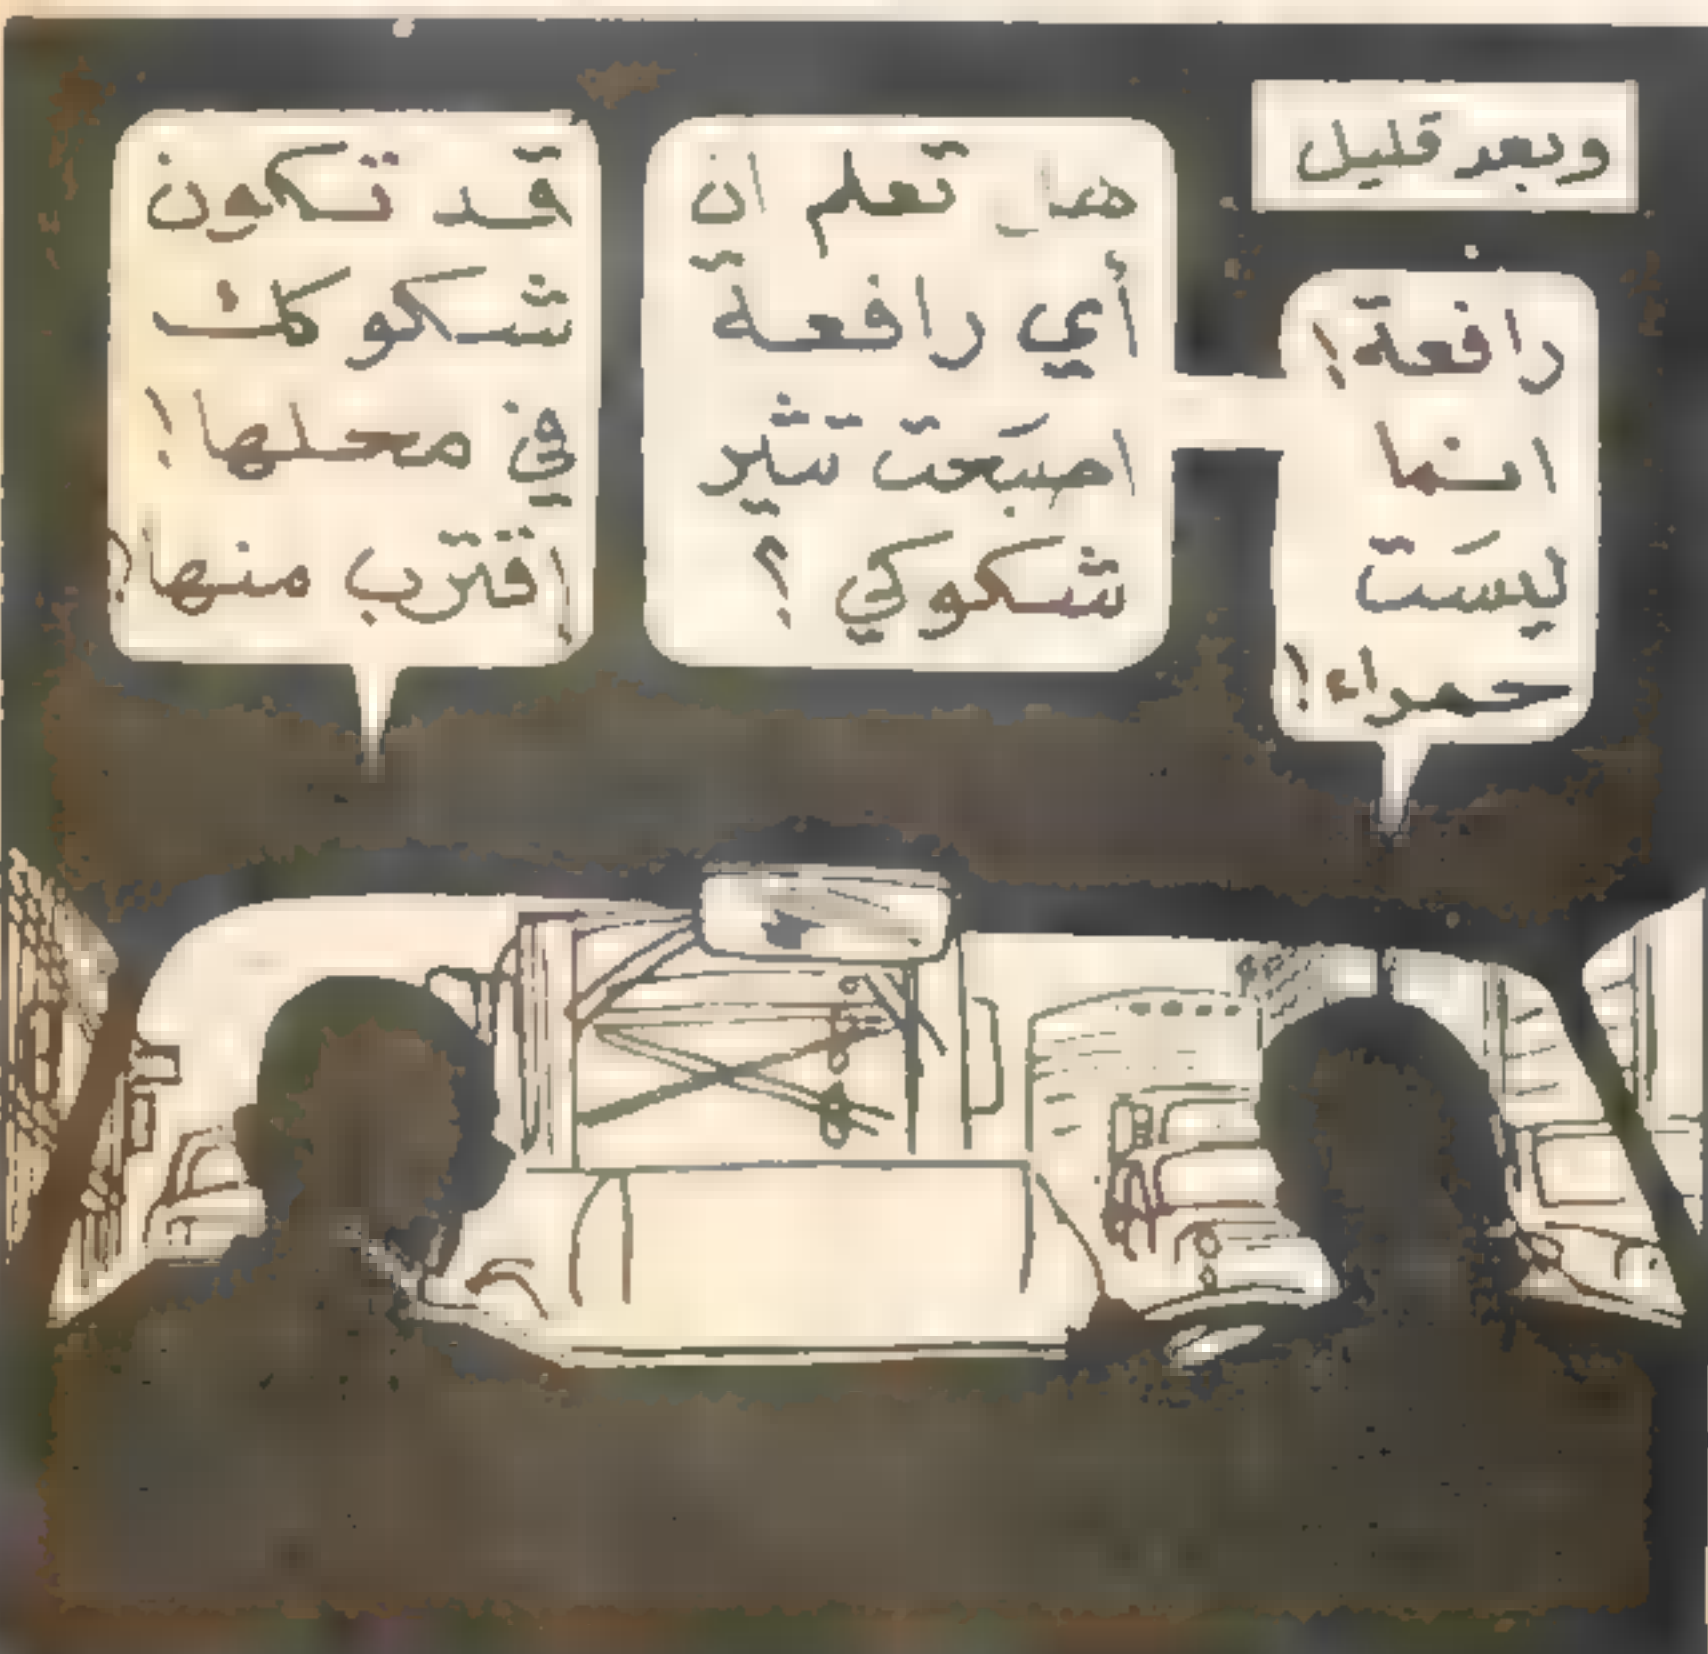 وبعد قليل
رافعة!
انما
ليست
حمراء!
هل تعلم ان
أي رافعة
اصبحت تثير
شكوكي ؟
قد تكون
شكوكك
في محلها!
اقترب منها!